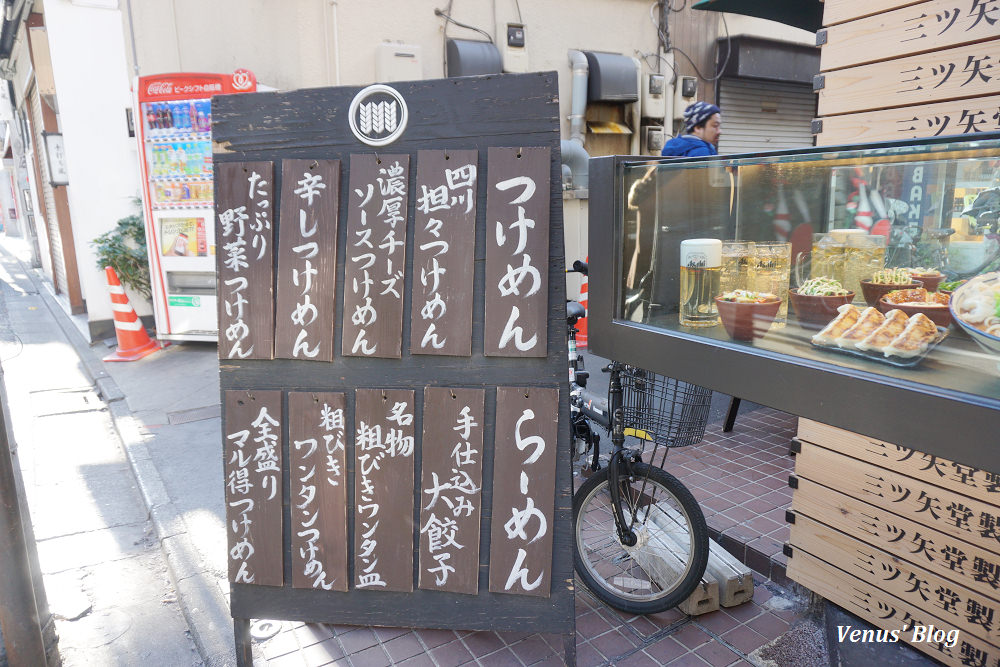 つけめん
四川
担々つけめん
濃厚チーズ
ソースつけめん
辛しつけめん
たっぷり
野菜つけめん
らーめん
手仕込み
大餃子
名物
粗びきワンタン皿
粗びき
ワンタンつけめん
全盛り
マル得つけめん
Coca-Cola
ピークシフト自販機
三ツ矢堂製
三ツ矢堂製
三ツ矢堂製
三ツ矢堂製
三ツ矢堂製
三ツ矢堂製
三ツ矢堂製
三ツ矢堂製
Asahi
Venus' Blog